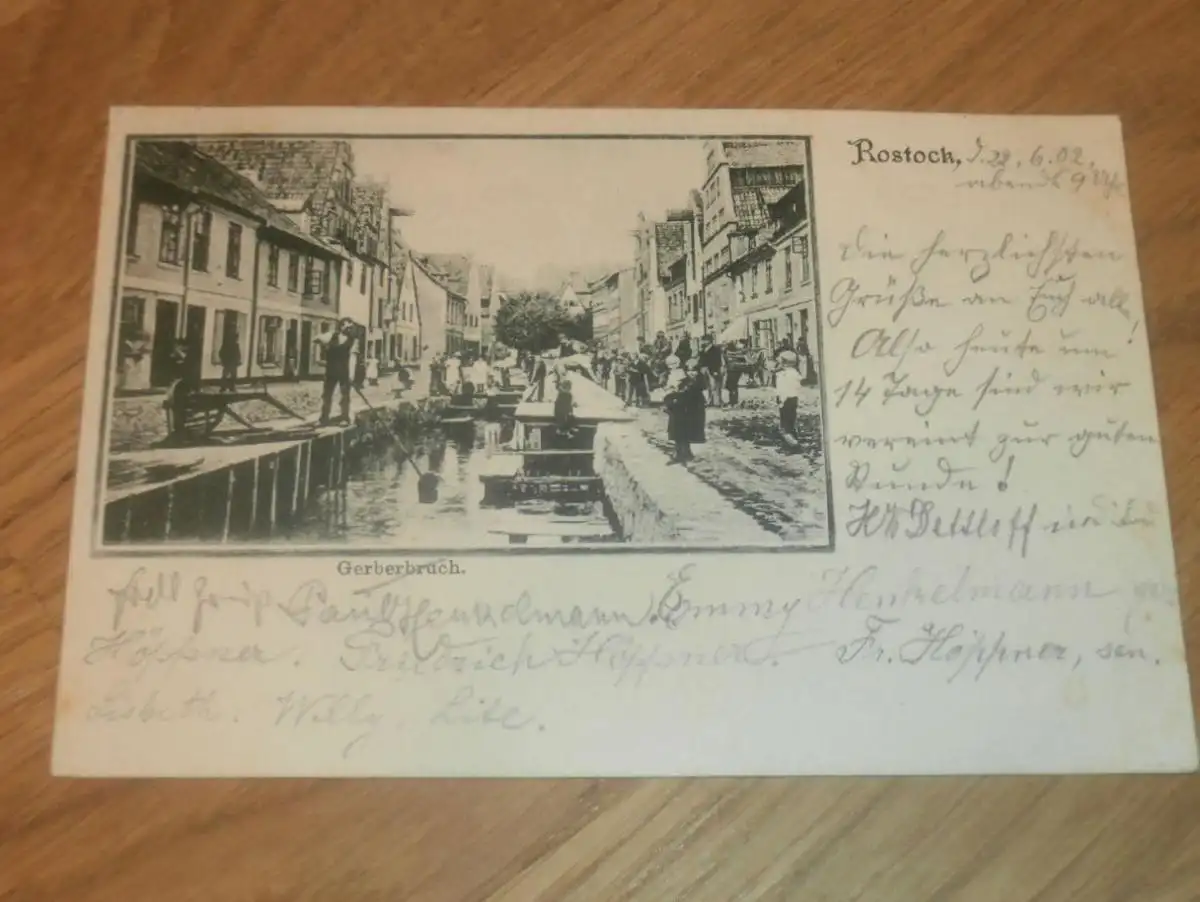 Rostock, d. 22. 6. 02,
abends 9 Uhr
Die herzlichsten
Grüße an Euch alle!
Also heute um
14 Tage sind wir
vereint zur guten
Stunde!
Dettloff
Gerberbruch.
Paul Henkelmann. Emmy Henkelmann
Höppner. Friedrich Höppner. Fr. Höppner, sen.
Lisbeth. Willy. Lite.